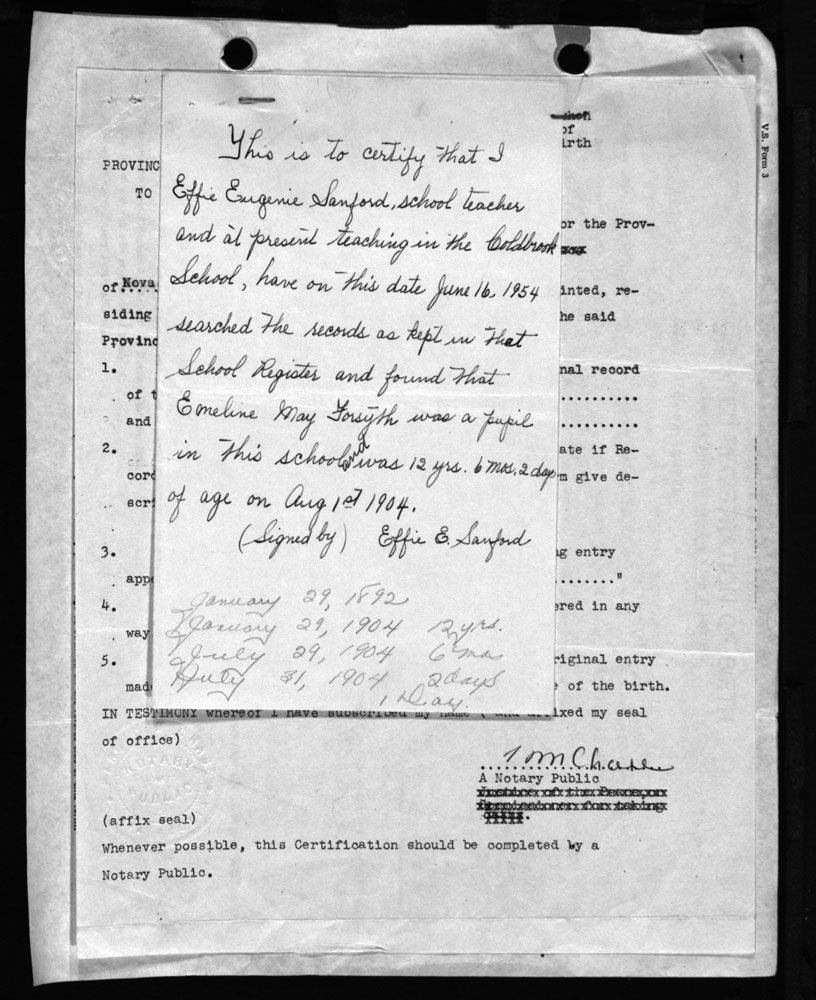 This is to certify that I
Effie Eugenie Sanford, school teacher
and at present teaching in the Coldbrook
School, have on this date June 16, 1954
searched the records as kept in that
School Register and found that
Emeline May Forsyth was a pupil
in this school and was 12 yrs. 6 mos. 2 days
of age on Aug 1st 1904.
(Signed by) Effie E. Sanford
January 29, 1892
January 29, 1904 12 yrs.
July 29, 1904 6 mos
July 31, 1904 2 days
1 Day.
V.S. Form 3
of
irth
PROVINC
TO
or the Prov-
of Nova inted, re-
siding he said
Provinc
1. nal record
of t
and
2. ate if Re-
cor m give de-
scri
3. ng entry
app ........."
4. ered in any
way
5. riginal entry
mad of the birth.
IN TESTIMONY whereof I have subscribed my name ( and affixed my seal
of office)
A Notary Public
(affix seal)
Whenever possible, this Certification should be completed by a
Notary Public.